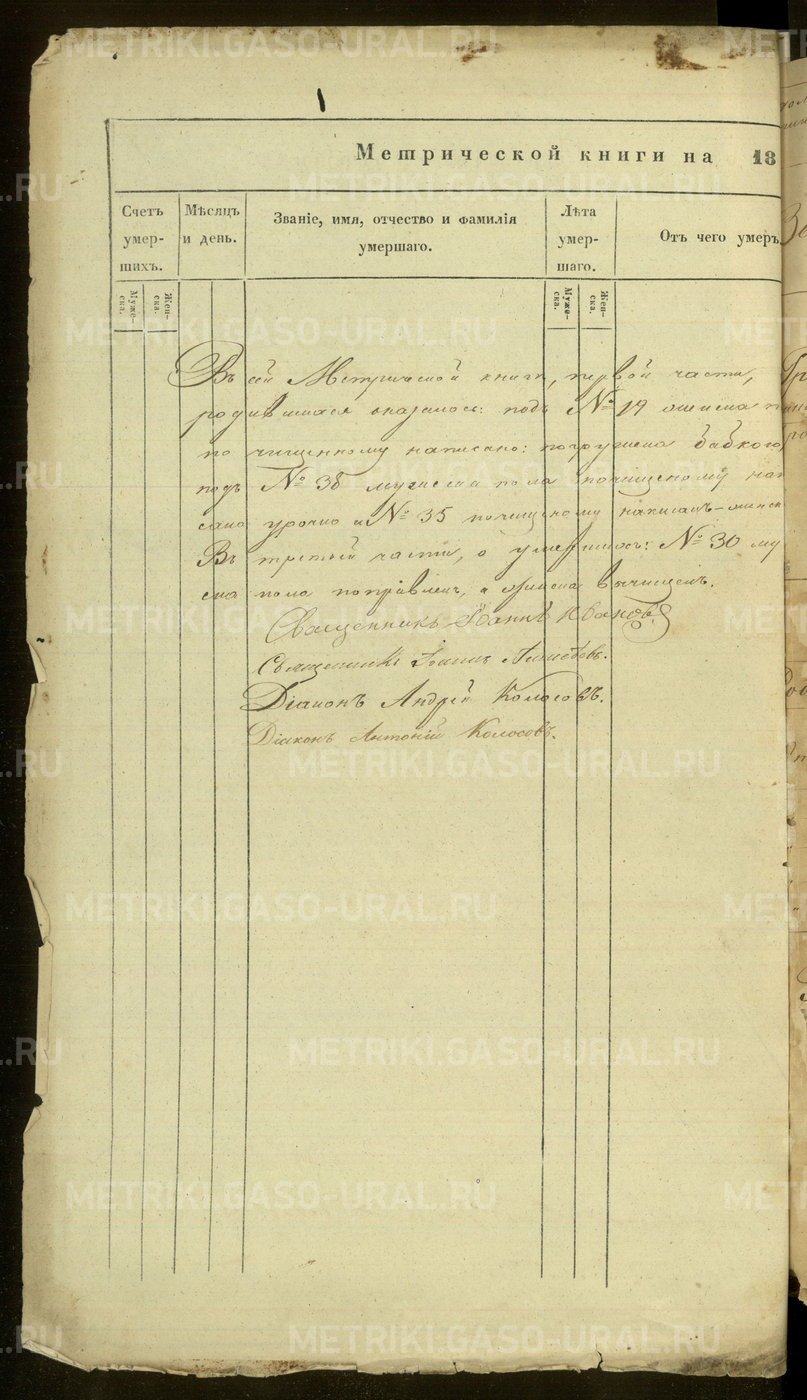 Метрической книги на 18
Счетъ умер- шихъ.
Мѣсяцъ и день.
Званіе, имя, отчество и фамилія умершаго.
Лѣта умер- шаго.
Отъ чего умеръ.
Муже- ска.
Жен- ска.
Муже- ска.
Жен- ска.
Въ сей Метрической книги, первой части,
родившихся оказалось: подъ № 14
по чищенному написано: погружена бабкою,
подъ № 38 мужеска пола почищеному нап
сано урочно и № 35 почищеному написан-
Въ третьей части, о умершихъ: № 30 му
ска пола поправлен, а вычищен.
Священникъ Іоаннъ Ивановъ
Священникъ Іоаннъ
Діаконъ Андрей Колосовъ.
Діаконъ Антоній Колосовъ.
METRIKI.GASO-URAL.RU